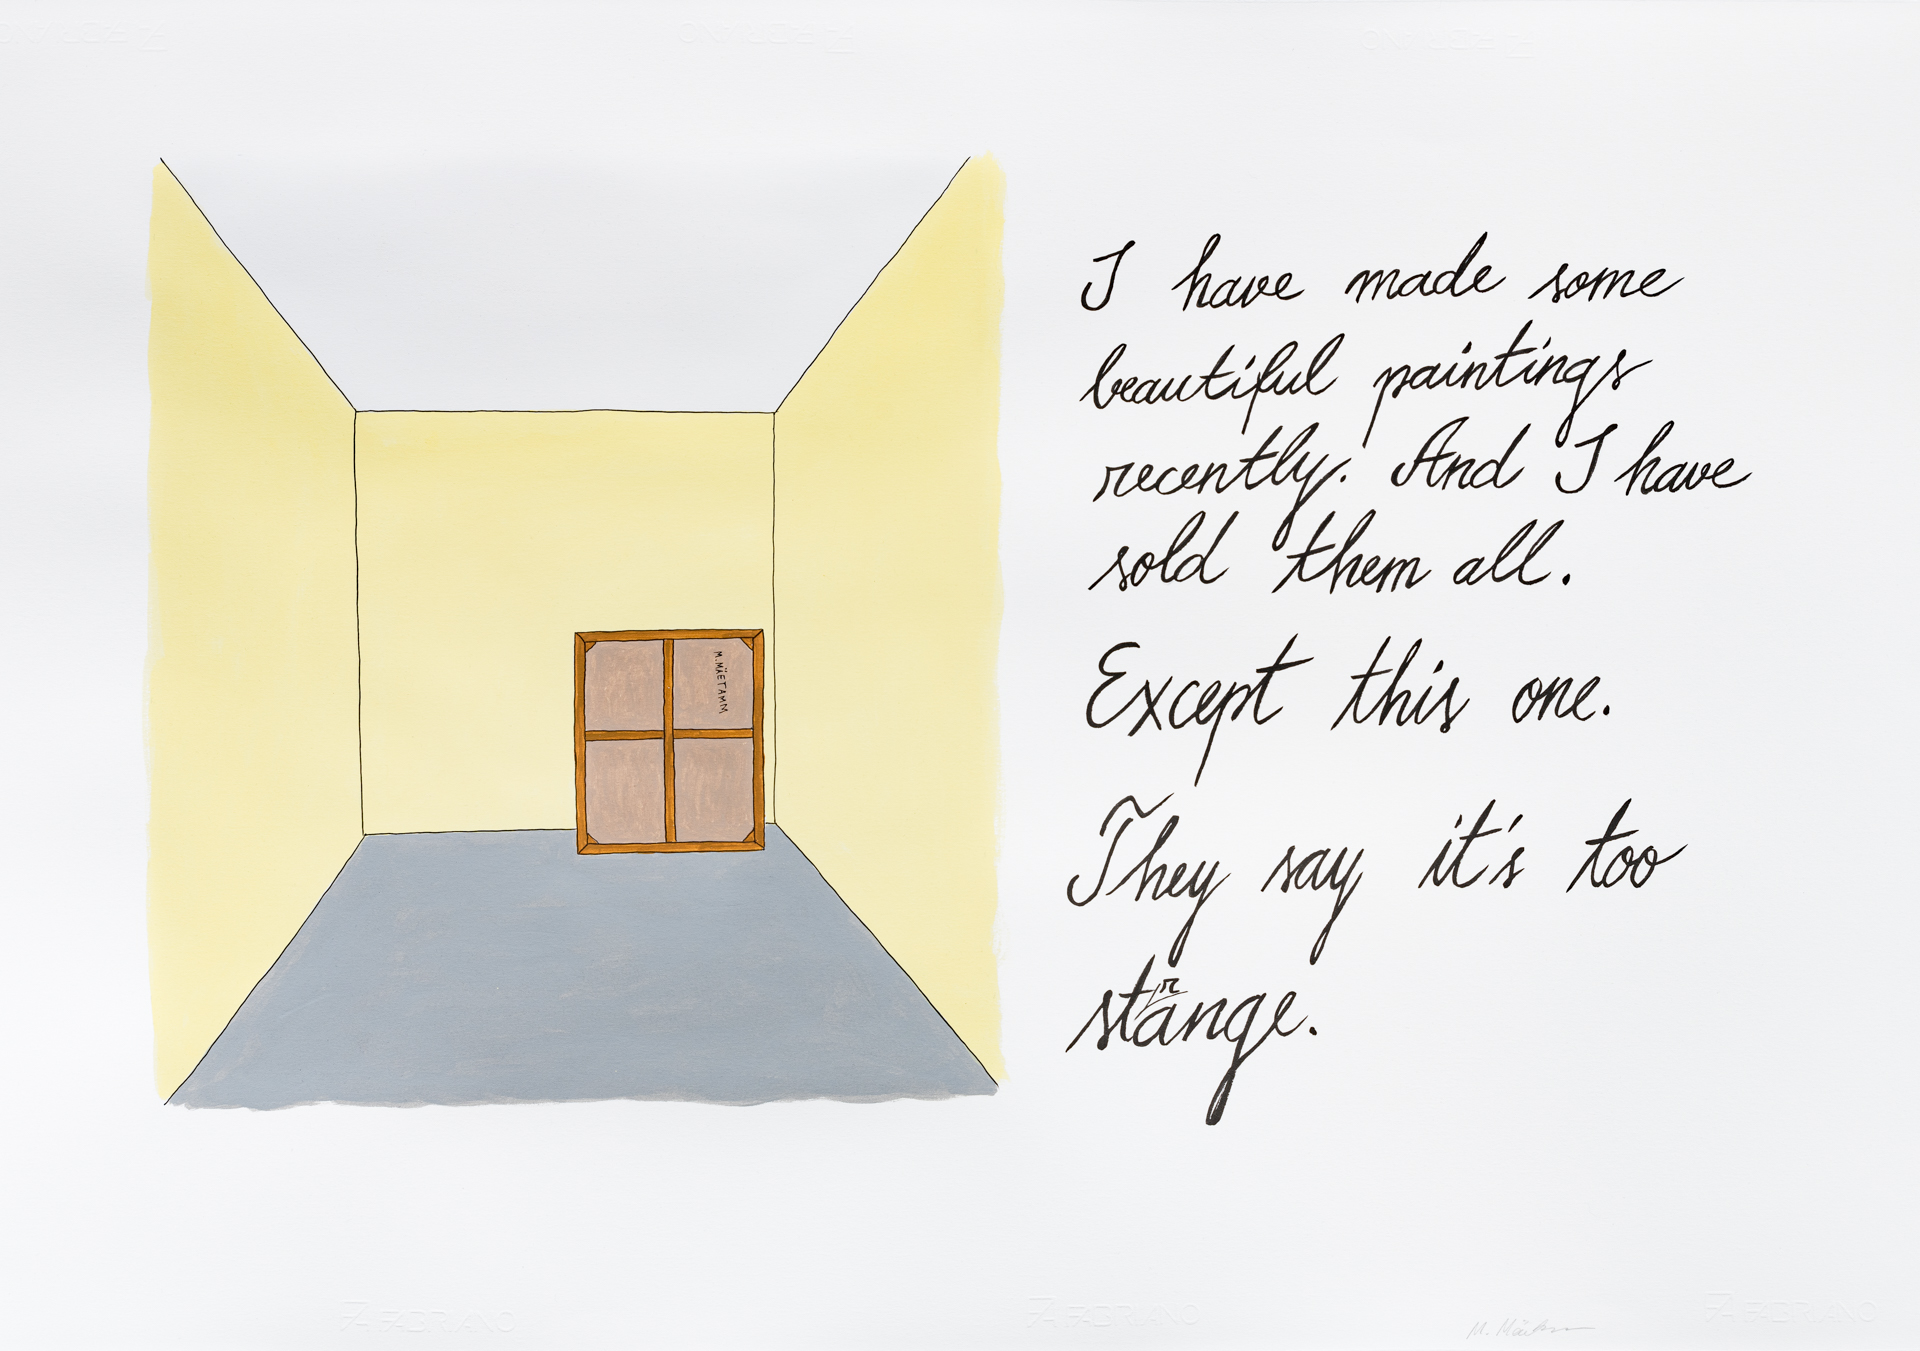 I have made some
beautiful paintings
recently. And I have
sold them all.
Except this one.
They say it's too
strange.
M. MÄETAMM
FABRIANO
FABRIANO
FABRIANO
FABRIANO
FABRIANO
FABRIANO